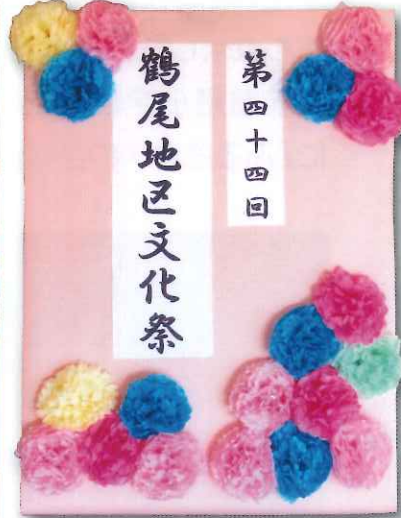 第四十四回
鶴尾地区文化祭